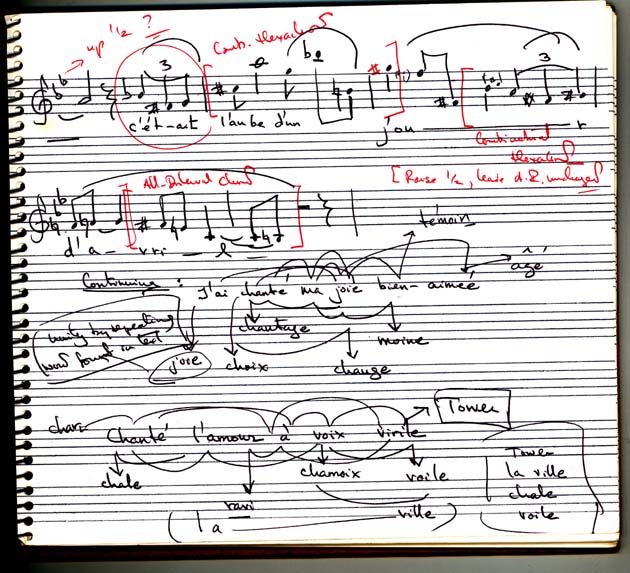 up 1/2 ?
Comb. Hexachord
3
3
c'ét-ait l'aube d'un j'ou r
Combinatorial
Hexachord
[Raise 1/2, leave d.Z. unchanged
All-Interval chord
d'a - vri - l
témoin
Continuing : J'ai chanté ma joie bien-aimée
âgé
unity by repeating
word found in text
chantage
moine
joie
choix
change
Tower
Chanté l'amour à voix virile
chale
chamoix
voile
ravi
( la ville )
Tower
la ville
chale
voile